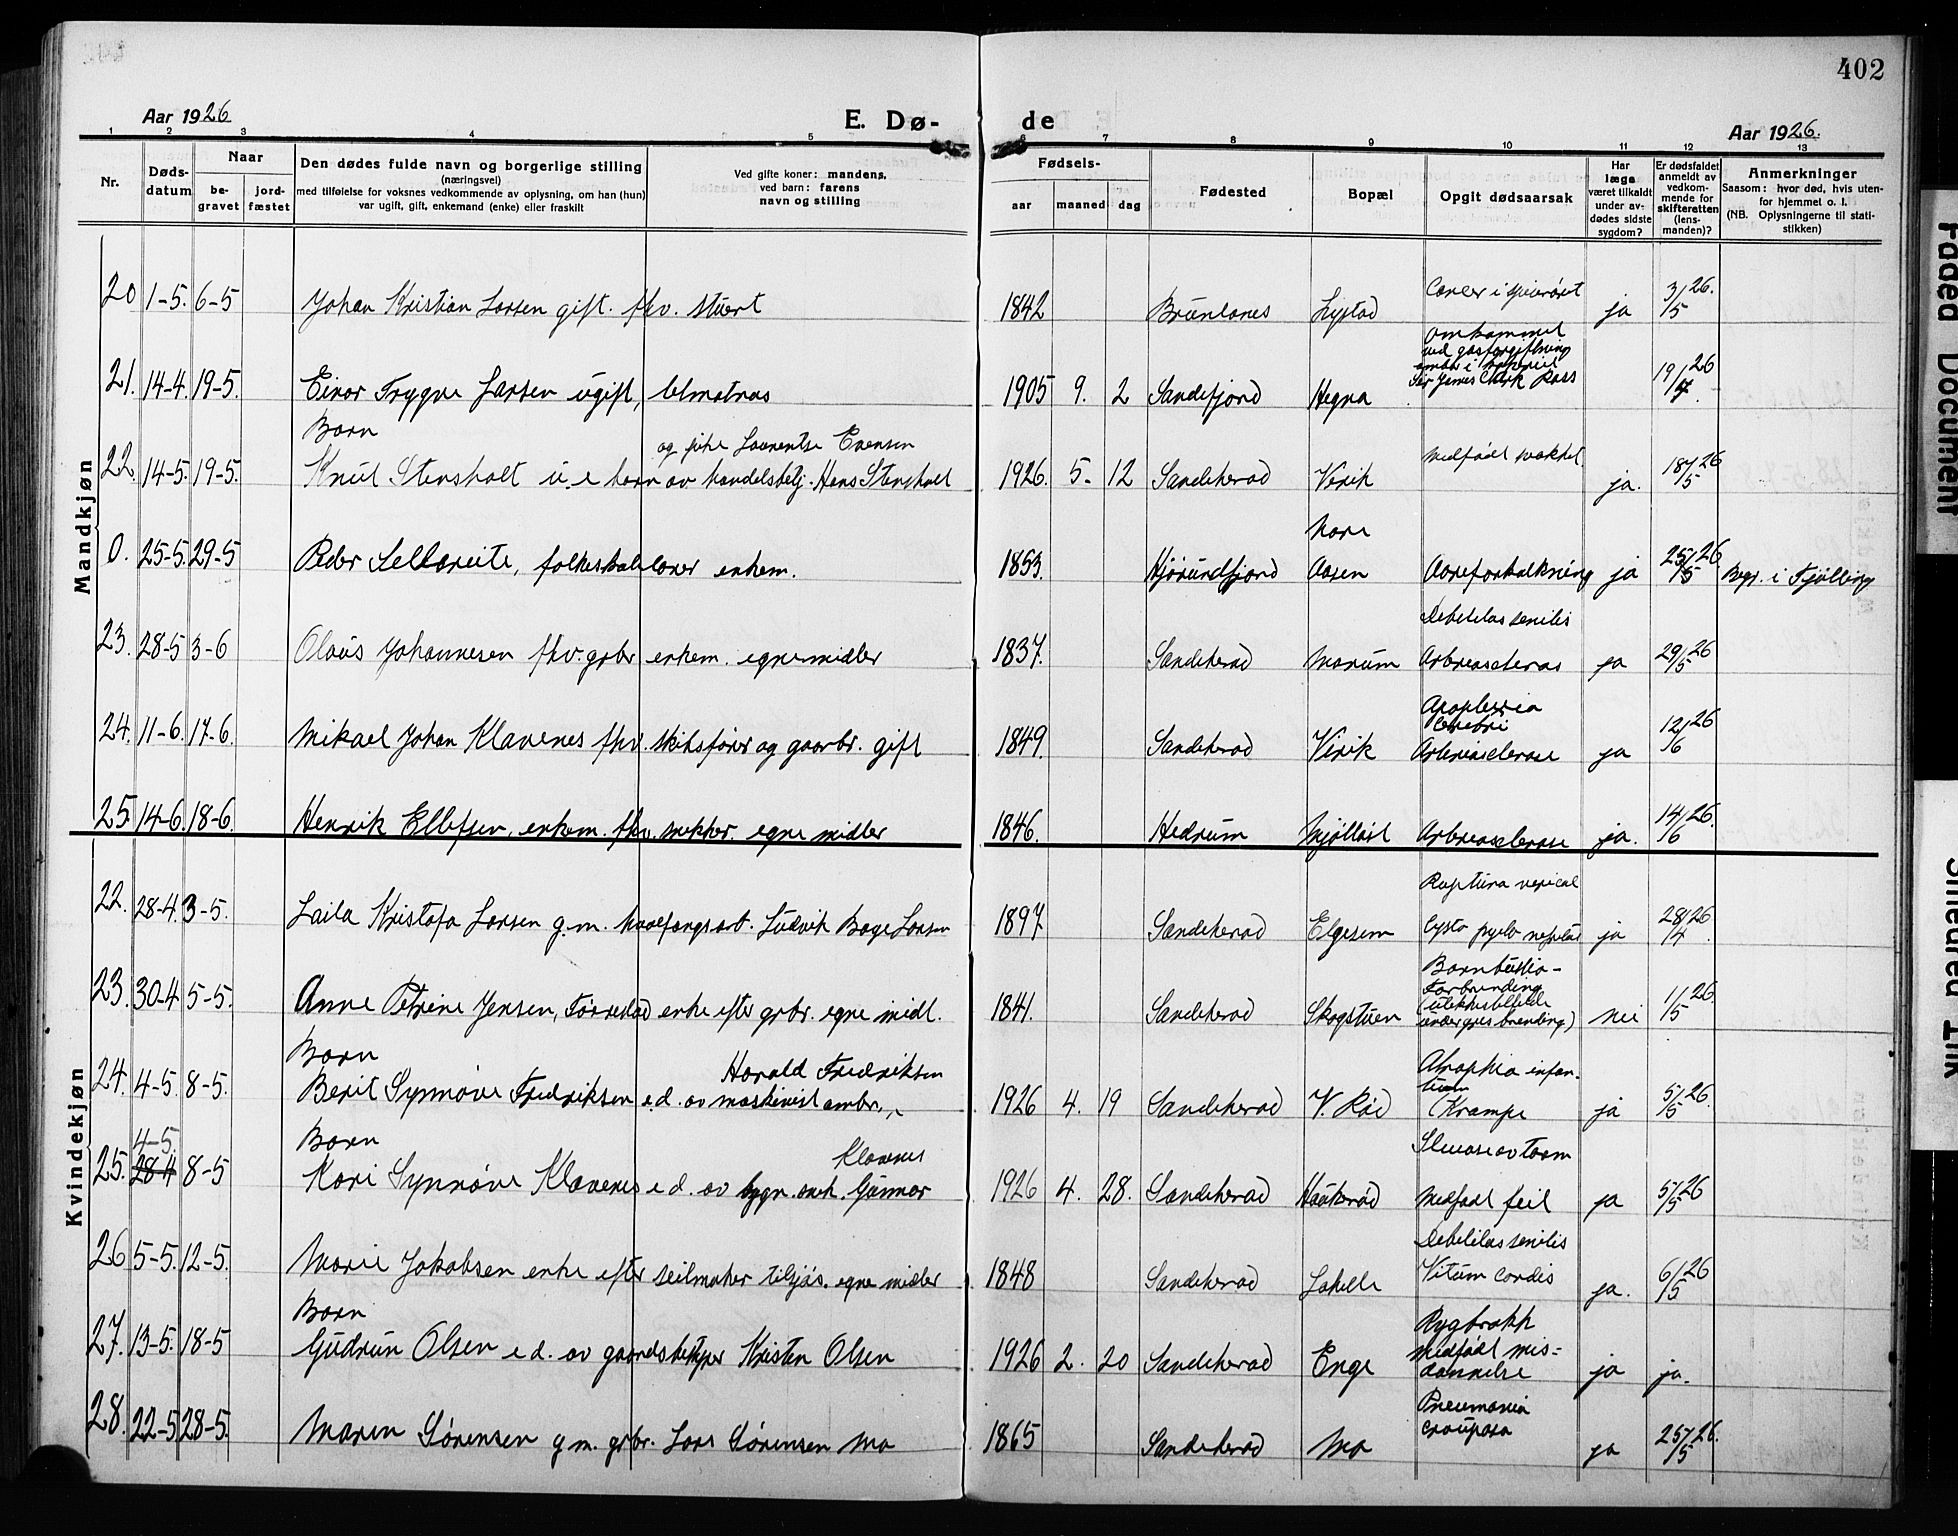 402
Aar 1926
E. Dø-
de
Aar 1926.
1 2 3 4 5 6 7 8 9 10 11 12 13
Nr.
Døds-
datum
Naar
be-
gravet
jord-
fæstet
Den dødes fulde navn og borgerlige stilling
(næringsvei)
med tilføielse for voksnes vedkommende av oplysning, om han (hun)
var ugift, gift, enkemand (enke) eller fraskilt
Ved gifte koner: mandens,
ved barn: farens
navn og stilling
Fødsels-
aar
maaned
dag
Fødested
Bopæl
Opgit dødsaarsak
Har
læge
været tilkaldt
under av-
dødes sidste
sygdom?
Er dødsfaldet
anmeldt av
vedkom-
mende for
skifteretten
(lens-
manden)?
Anmerkninger
Saasom: hvor død, hvis uten-
for hjemmet o. l.
(NB. Oplysningerne til stati-
stikken)
Mandkjøn
20 1-5. 6-5 Johan Kristian Larsen gift. fhv. stuert 1842 Brunlanes Lystad Cancer i spiserøret ja 3/5 26.
21. 14-4. 19-5. Einar Trygve Larsen ugift, telmatros 1905 9. 2 Sandefjord Hegna omkommet
ved gasforgiftning
ombord i hvalkokeri
Sir James Clark Ross 19/4 26
Barn
og pike Laurentse Evensen
22. 14-5. 19-5. Knut Stensholt u. e barn av handelsbetj. Hans Stensholt 1926. 5- 12 Sandeherad Virik medfødt svakhet. ja. 18/5 26
0. 25-5. 29-5 Peder Sellereite, folkeskolelærer enkem. 1853. Hjørundfjord Nore
Aasen Aareforkalkning ja 25/5 26 Begr. i Tjølling
23. 28-5 3-6 Olaus Johannesen fhv. grbr enkem. egne midler 1837. Sandeherad Marum Debilitas senilis
Arteriosclerose ja 29/5 26
24. 11-6. 17-6. Mikael Johan Klavenes fhv. skibsfører og gaarbr. gift 1849. Sandeherad Virik Apoplexia
Cerebri
Arteriosclerose ja 12/6 26
25. 14-6. 18-6. Henrik Ellefsen, enkem. fhv. snekker. egne midler 1846. Hedrum Mjøllost Arteriosclerose ja. 14/6 26.
Kvindekjøn
22. 28-4. 3-5. Laila Kristofa Larsen g. m. hvalfangsarb. Ludvik Boge Larsen 1897 Sandeherad Elgesem Ruptura vesical
Cysto pyelo nephritis ja 28/4 26
23. 30-4 5-5. Anne Petrine Jensen, Førrestad enke efter grbr. egne midl. 1841. Sandeherad Skogstuen
Forbrænding
(ulykkestilfelde
under græsbrending) nei 1/5 26.
Barn
Harald Fredriksen
24. 4-5. 8-5. Berit Synnøve Fredriksen e. d. av maskinist ambr. 1926 4. 19 Sandeherad V. Rød Atrophia infan-
tum
(Krampe ja 5/5 26.
Barn
4-5.
Klavenes
25. 28-4 8-5 Kari Synnøve Klavenes e d. av bygn. snek. Gunnar 1926 4. 28. Sandeherad Haukerød Stenose av tarm
medfødt feil ja 5/5 26
26 5-5. 12-5. Marie Jakobsen enke efter seilmaker tilsjøs. egne midler 1848 Sandeherad Lahelle Debilitas senilis
Vitium cordis ja. 6/5 26
Barn
27. 13-5. 18-5 Gudrun Olsen e d. av gaardsbestyrer Kristen Olsen 1926 2. 20 Sandeherad Enge Rygbrokk
medfødt mis=
dannelse ja ja.
28. 22-5 28-5. Maren Sørensen g m. grbr. Lars Sørensen Mo 1865 Sandeherad Mo Pneumonia
crouposa ja 25/5 26.
Faded Document
Sheared Ink